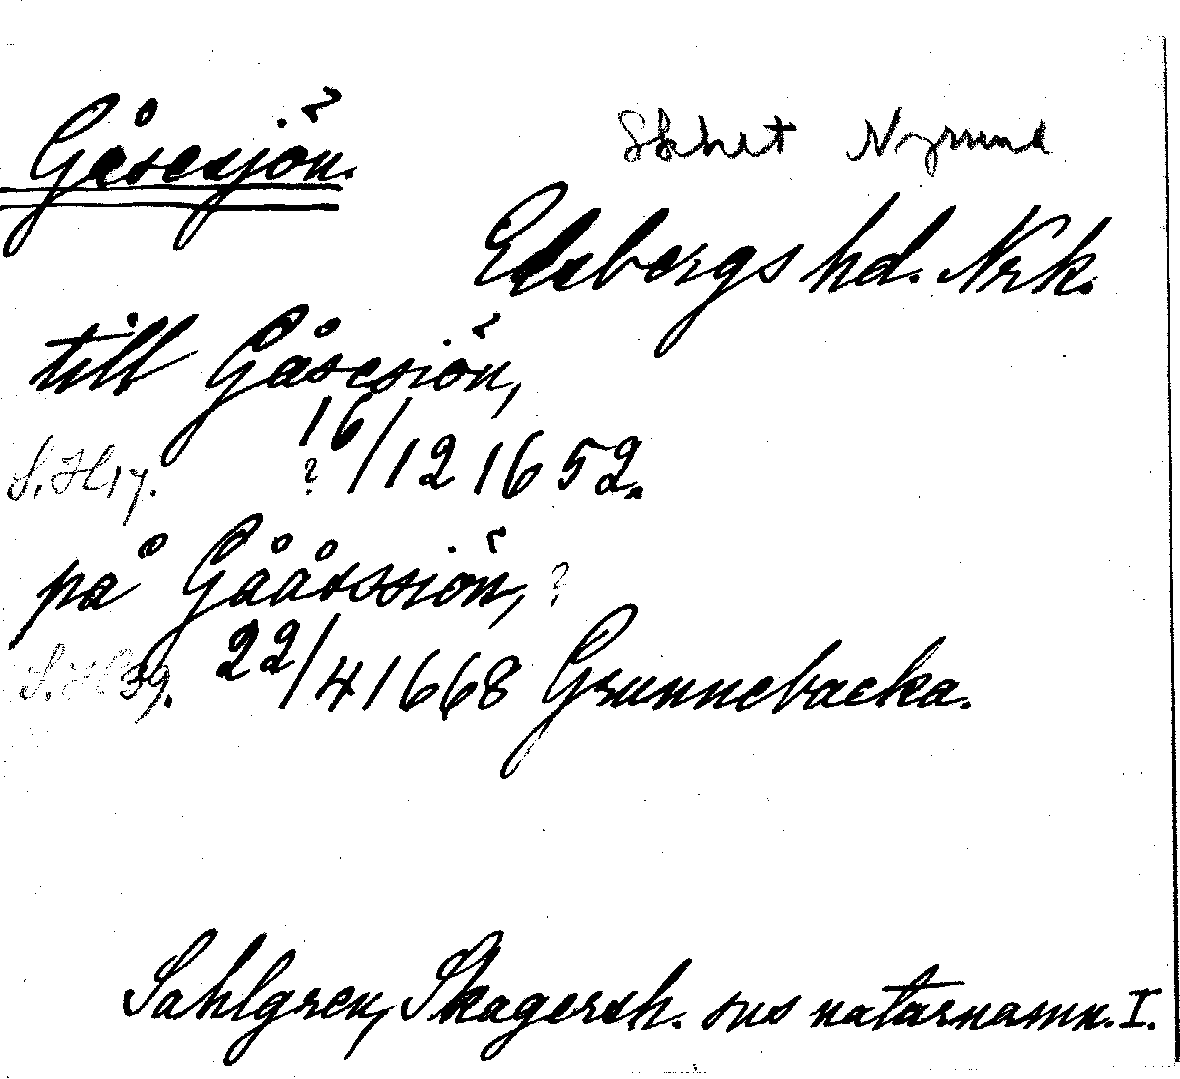 Gåsesjön.
Edsbergs hd. Nrk.
till Gåsesiön,
S. H 17. ? 16/12 1652.
på Gååsssiön, ?
S. H 39. 22/4 1668 Grunnebacka.
Sahlgren, Skagersh. sns naturnamn. I.